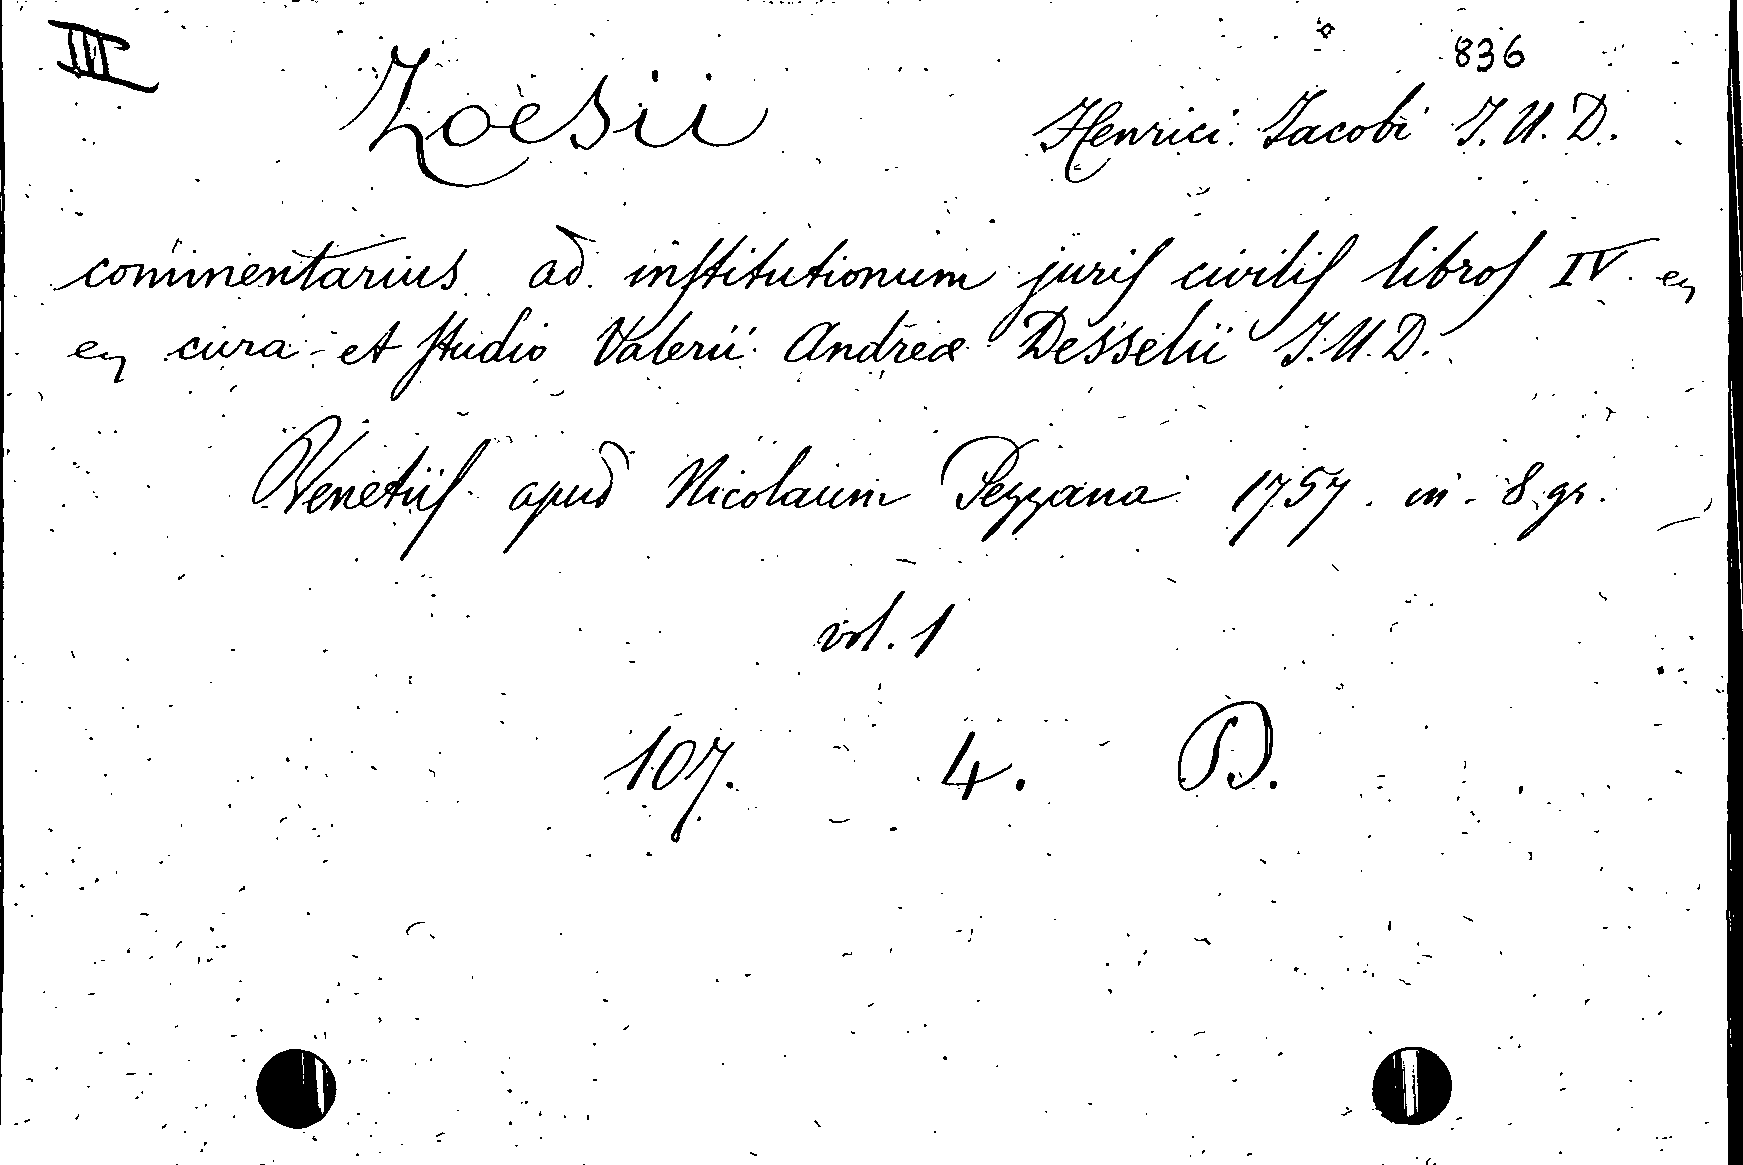 III 836
Zoesii Henrici Jacobi J. U. D.
commentarius ad institutionum juris civilis libros IV ex
ex cura et studio Valerii Andreæ Desselii J. U. D.
Venetiis apud Nicolaum Pezzana 1757. in 8 gr.
vol. 1
107. 4. B.